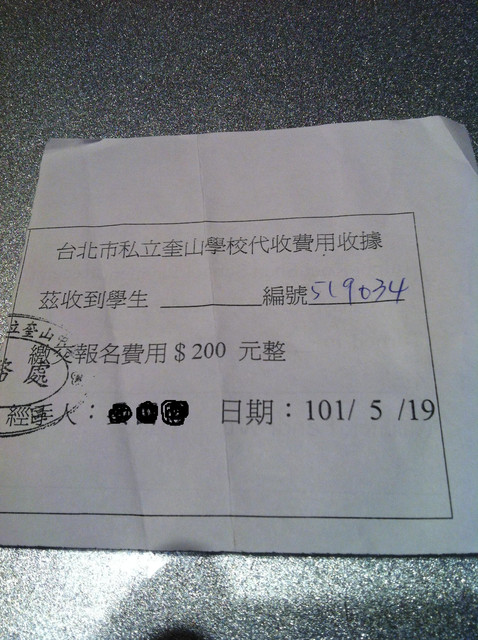 台北市私立奎山學校代收費用收據
茲收到學生 編號519034
繳交報名費用$200 元整
經手人： 日期：101/ 5 /19
立奎山
務處